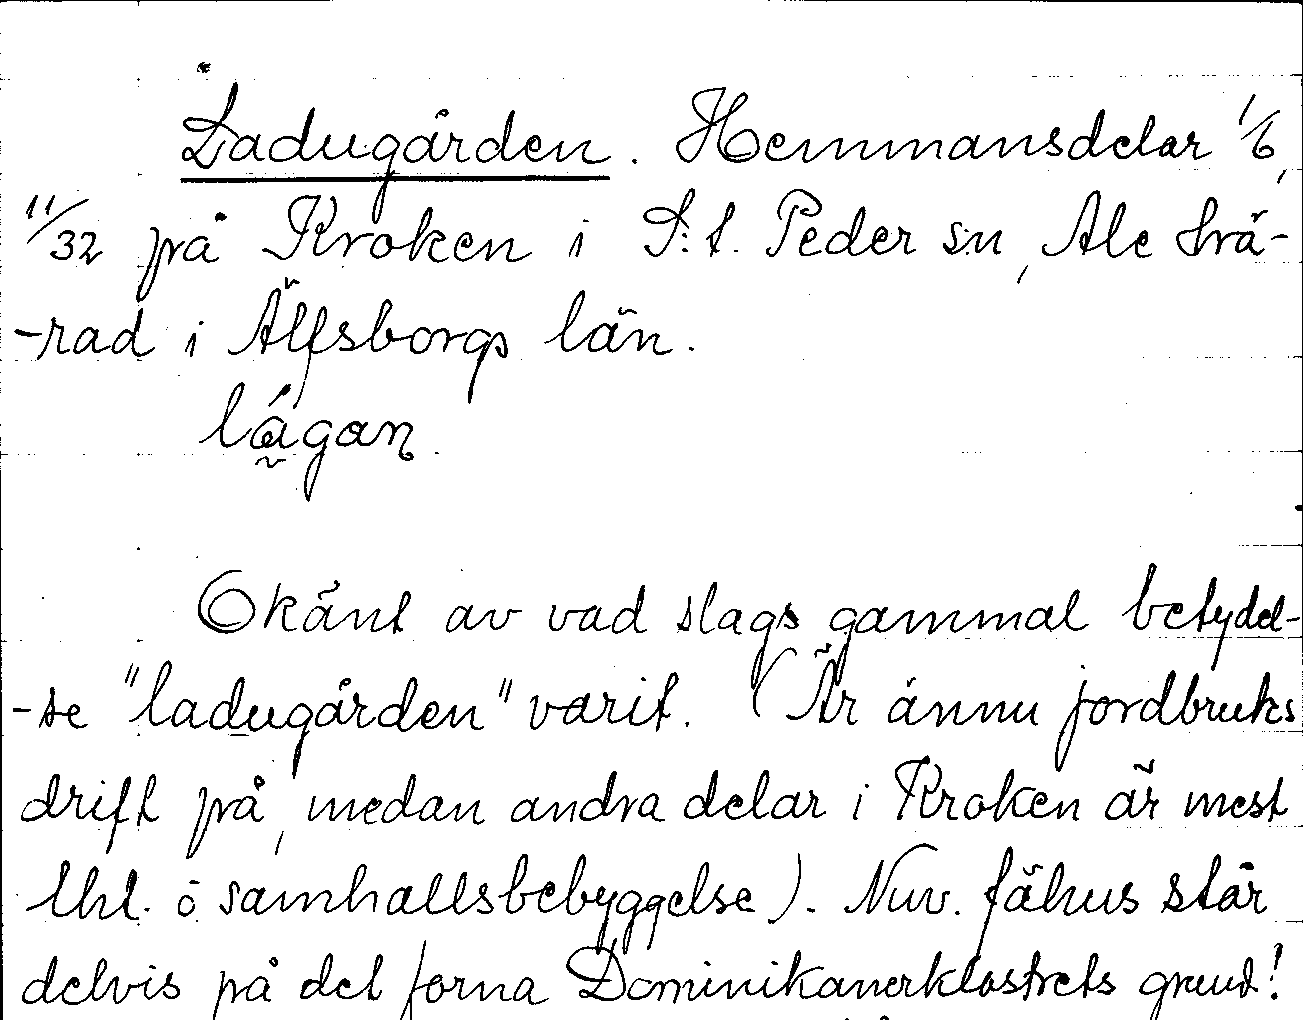 Ladugården. Hemmansdelar 1/6,
11/32 på Kroken i S:t. Peder sn, Ale hä-
-rad i Älfsborgs län.
lågan.
Okänt av vad slags gammal betydel-
-se "ladugården" varit. (Är ännu jordbruks
drift på, medan andra delar i Kroken är mest
tht. ö samhällsbebyggelse). Nuv. fähus står
delvis på det forna Dominikanerklostrets grund!